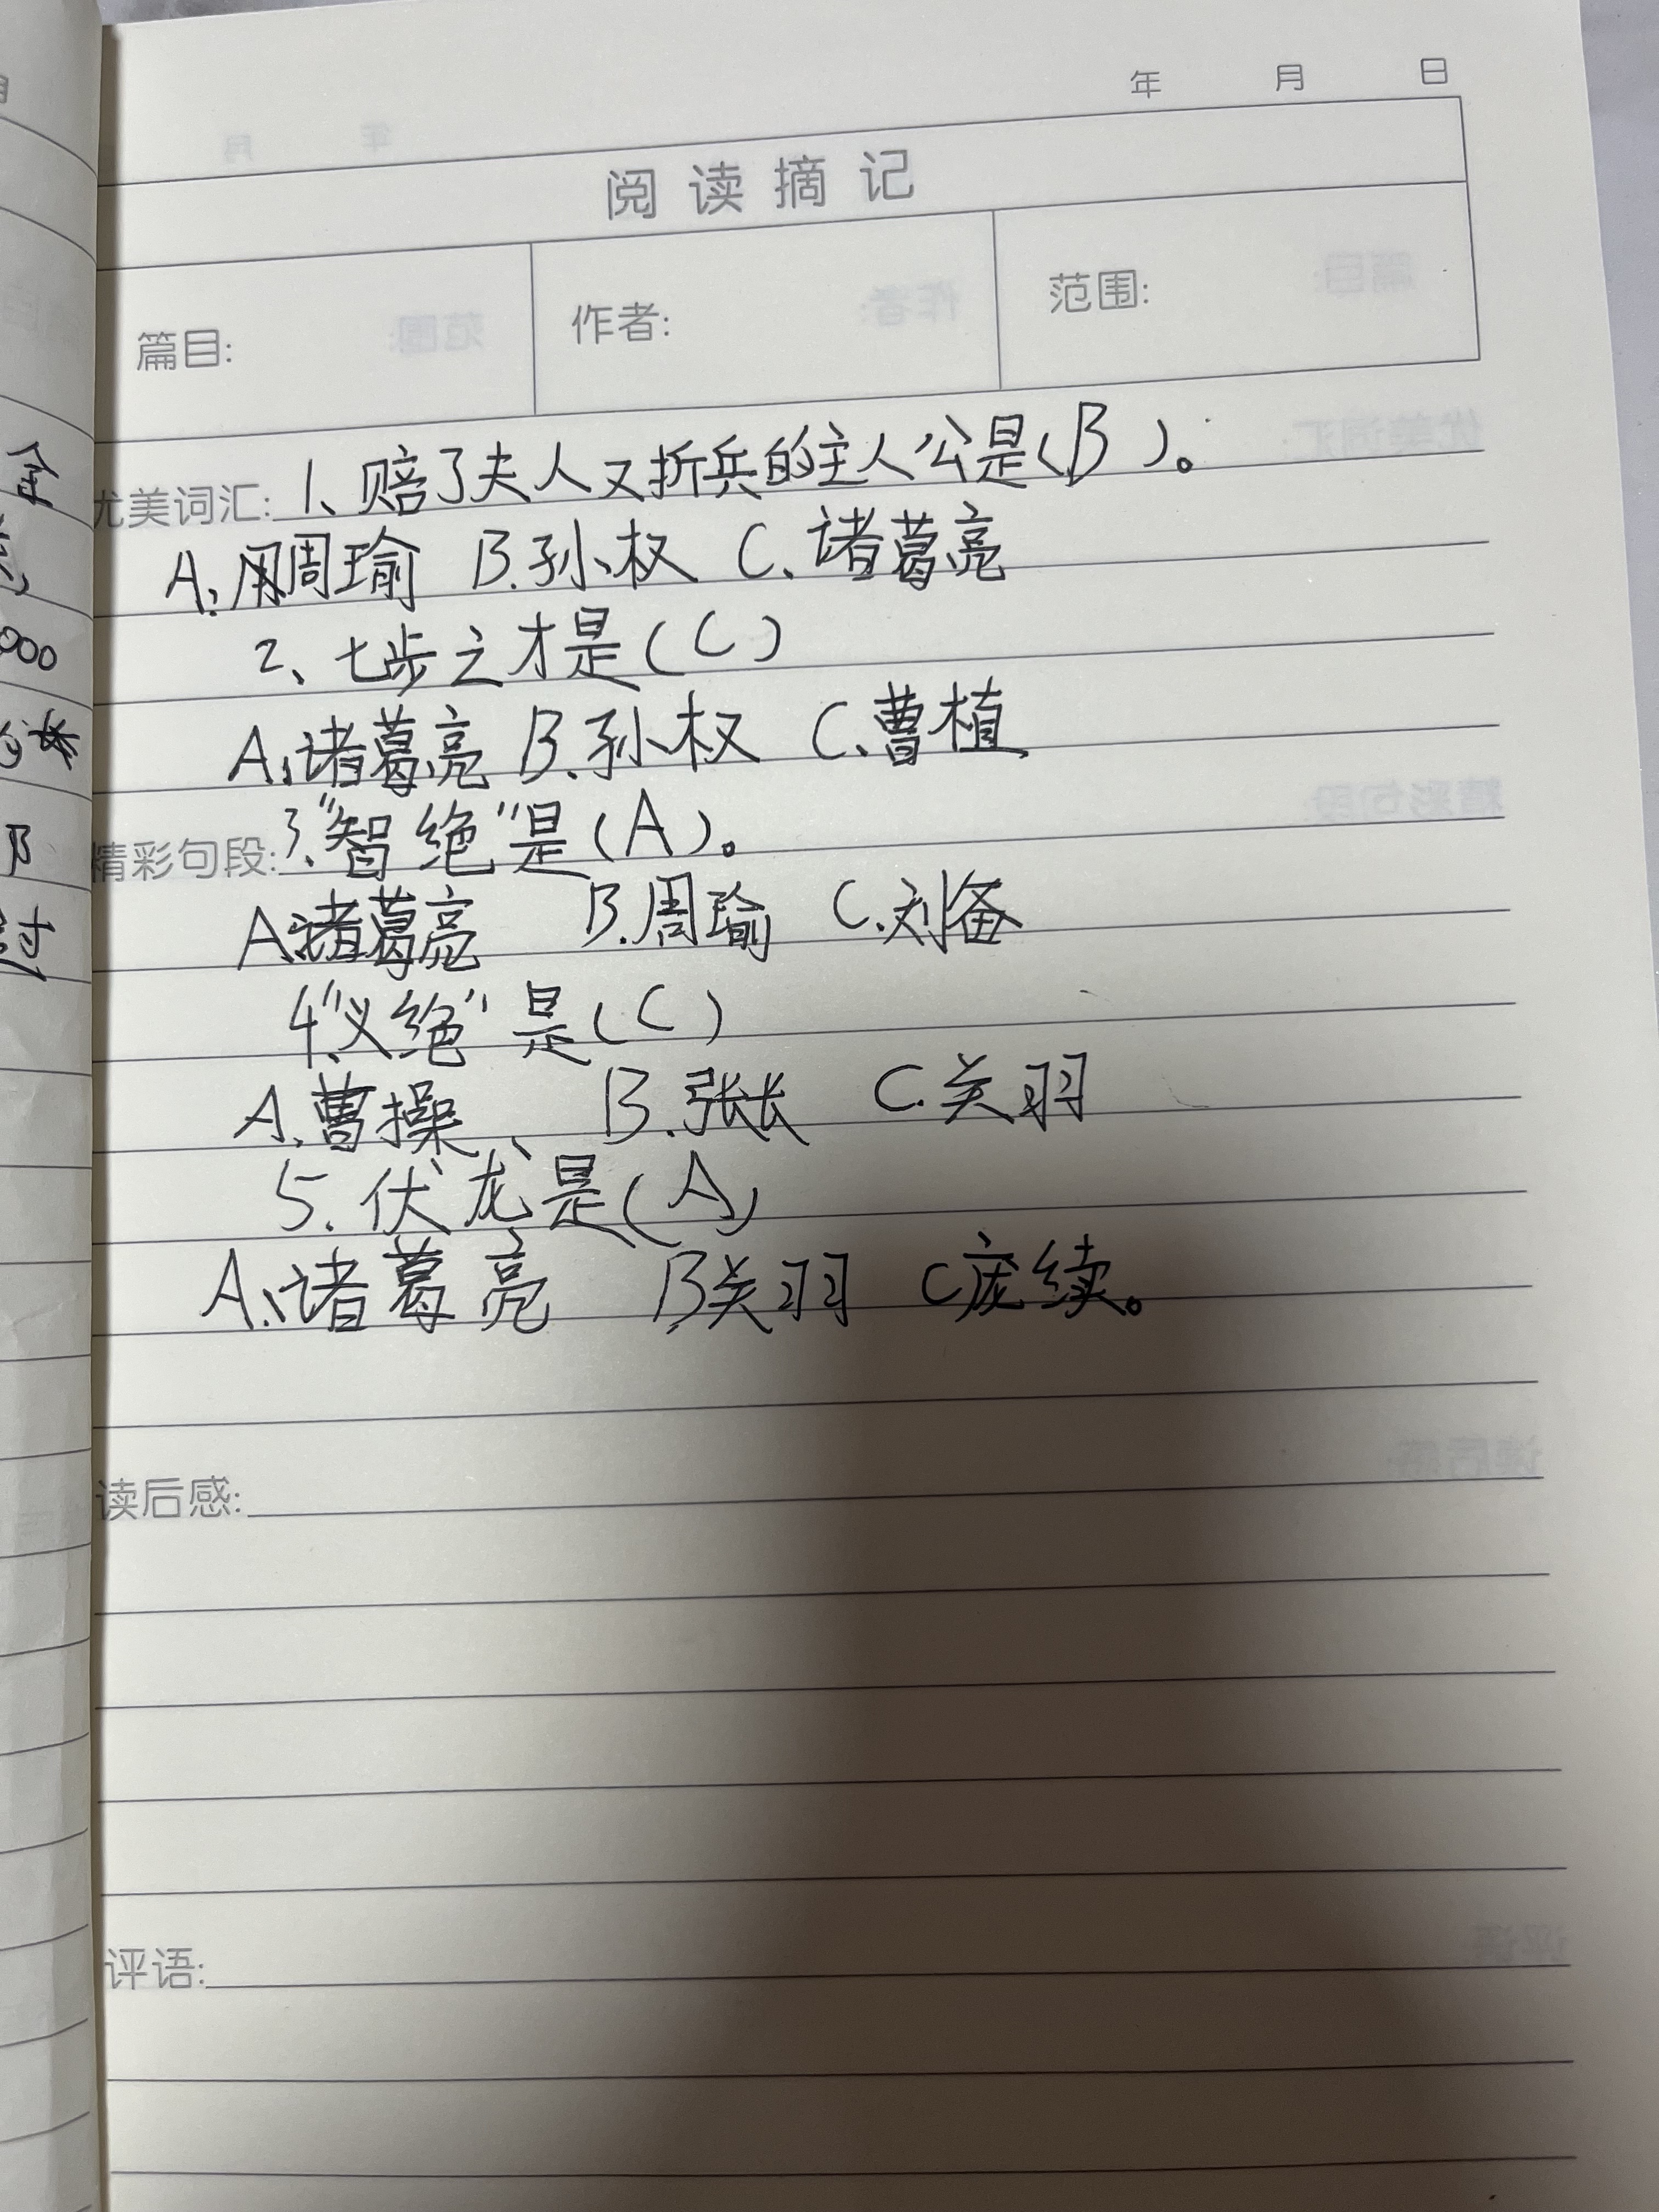 年 月 日
阅读摘记
篇目: 作者: 范围:
优美词汇: 1、赔了夫人又折兵的主人公是(B)。
A.周瑜 B.孙权 C、诸葛亮
2、七步之才是(C)
A、诸葛亮 B.孙权 C、曹植
精彩句段: 3、"智绝"是(A)。
A.诸葛亮 B.周瑜 C.刘备
4、"义绝"是(C)
A.曹操、 B.张长 C.关羽
5.伏龙是(A)
A、诸葛亮 B关羽 C庞续。
读后感:
评语: